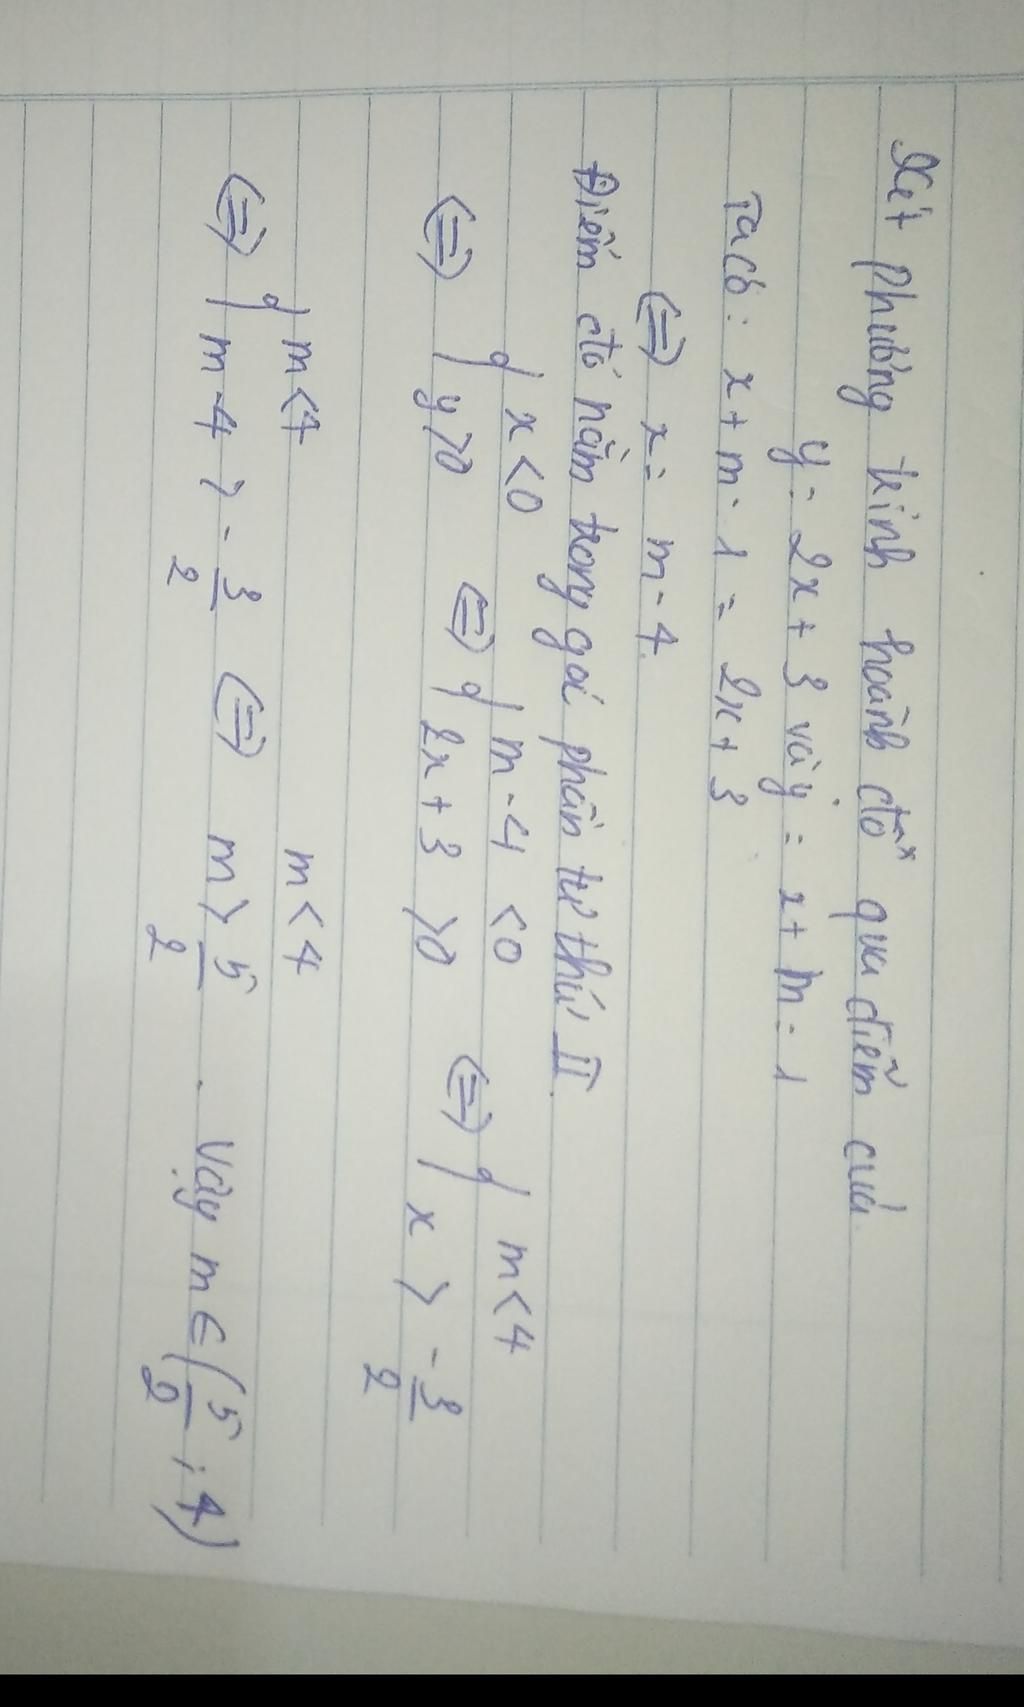 Xét phương trình hoành độ qua điểm của
y = 2x + 3 và y = x + m - 1
Ta có: x + m - 1 = 2x + 3
⇔ x = m - 4
Điểm đó nằm trong gói phần tư thứ II.
⇔ { x < 0 ⇔ { m - 4 < 0 ⇔ { m < 4
y > 0 2x + 3 > 0 x > -3/2
⇔ { m < 4 m < 4
m - 4 > -3/2 ⇔ m > 5/2 . Vậy m ∈ (5/2 ; 4)